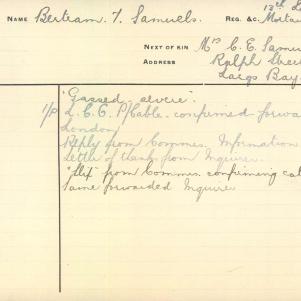 NAME Bertram T. Samuels. REG. &C. 13th L
Mortar
NEXT OF KIN Mrs C. E. Samue
ADDRESS Ralph Stree
Largs Bay
"Gassed severe".
1/P L. C. C. P/Cable. confirmed forwa
London
Reply from Commes. Information
Letter of thanks from Inquirer.
"Slip" from Commes. confirming cab
Same forwarded Inquirer